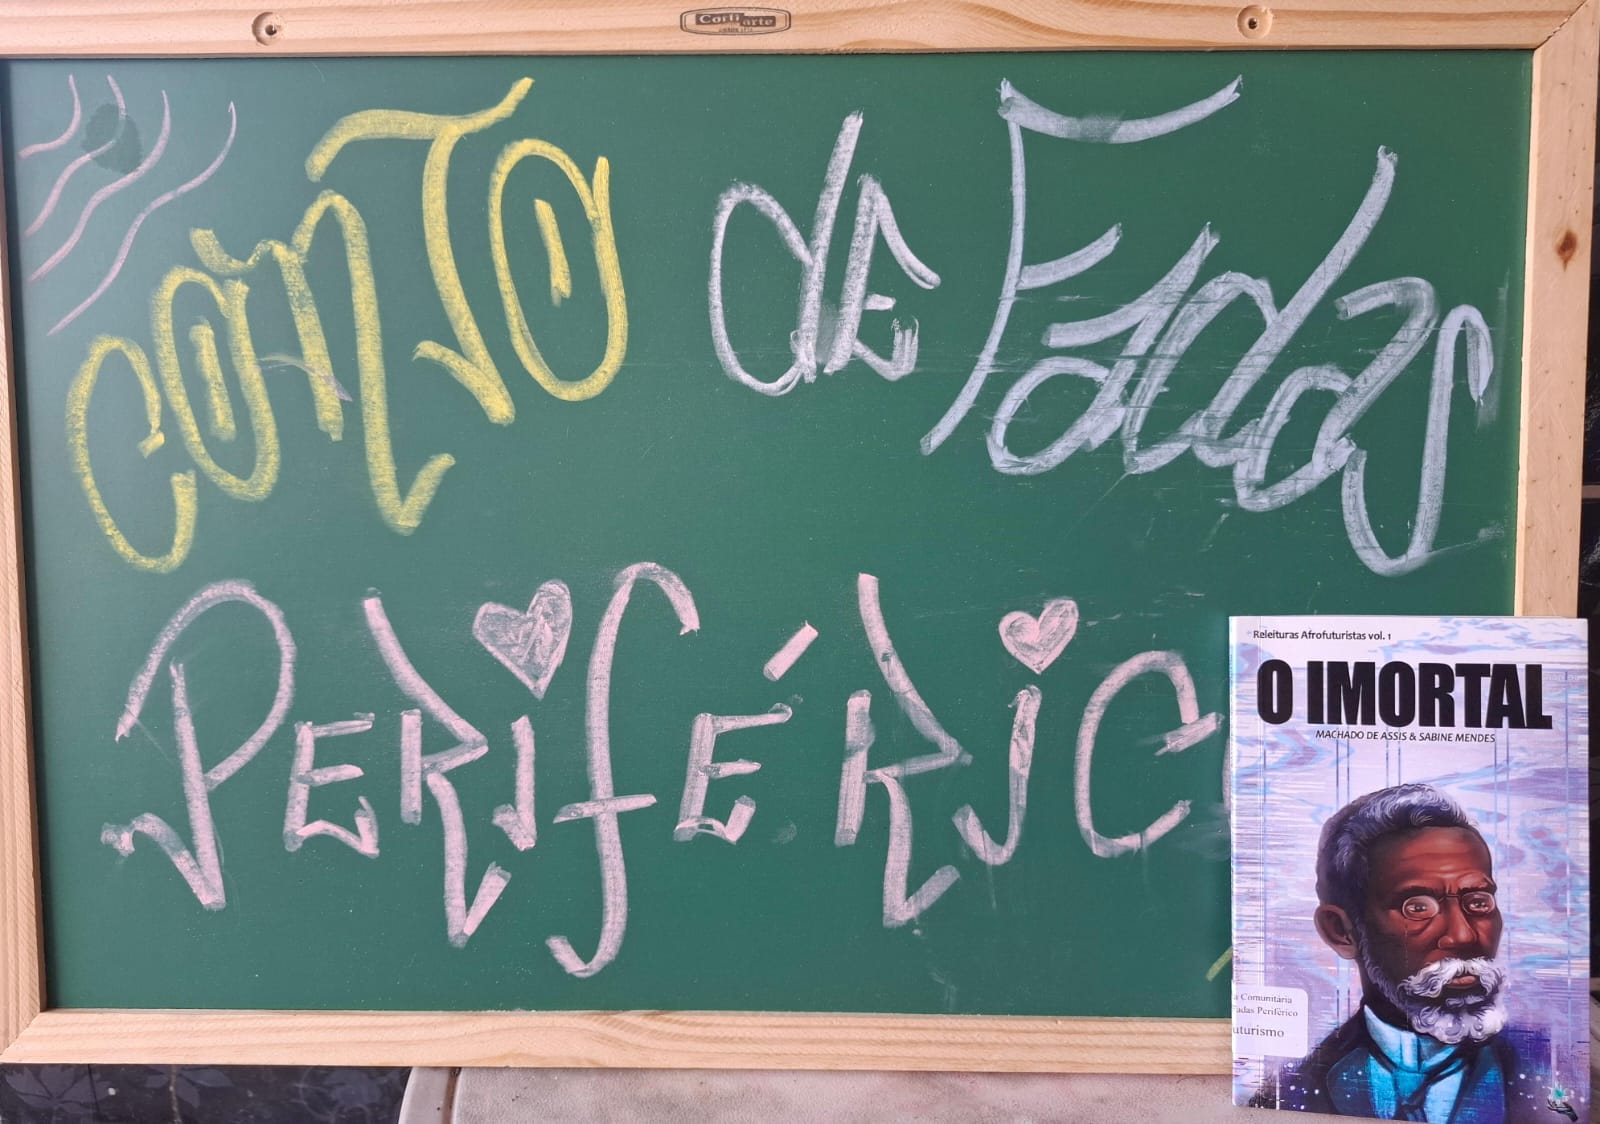 Corti arte
CONTO de Fadas
PERIFÉRIC
Releituras Afrofuturistas vol. 1
O IMORTAL
MACHADO DE ASSIS & SABINE MENDES
a Comunitária
Fadas Periférico
uturismo